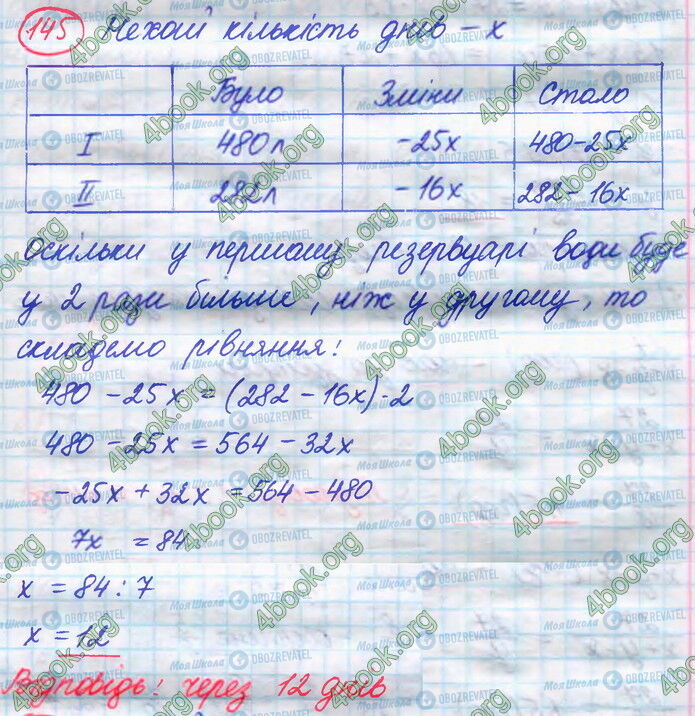 145 Нехай кількість днів – x
Було Зміни Стало
I 480 л -25x 480-25x
II 282 л -16x 282-16x
Оскільки у першому резервуарі води буде
у 2 рази більше, ніж у другому, то
складемо рівняння:
480 - 25x = (282 - 16x)·2
480 - 25x = 564 - 32x
-25x + 32x = 564 - 480
7x = 84
x = 84 : 7
x = 12
Відповідь: через 12 днів
4book.org
Моя Школа OBOZREVATEL